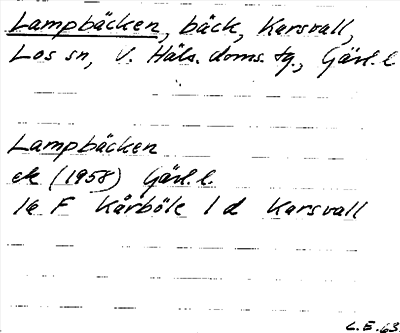 Lampbäcken, bäck, Karsvall,
Los sn, V. Häls. doms. tg., Gävl. l
Lampbäcken
ek (1958) Gävl. l.
16 F Kårböle 1 d Karsvall
C.E. 63.